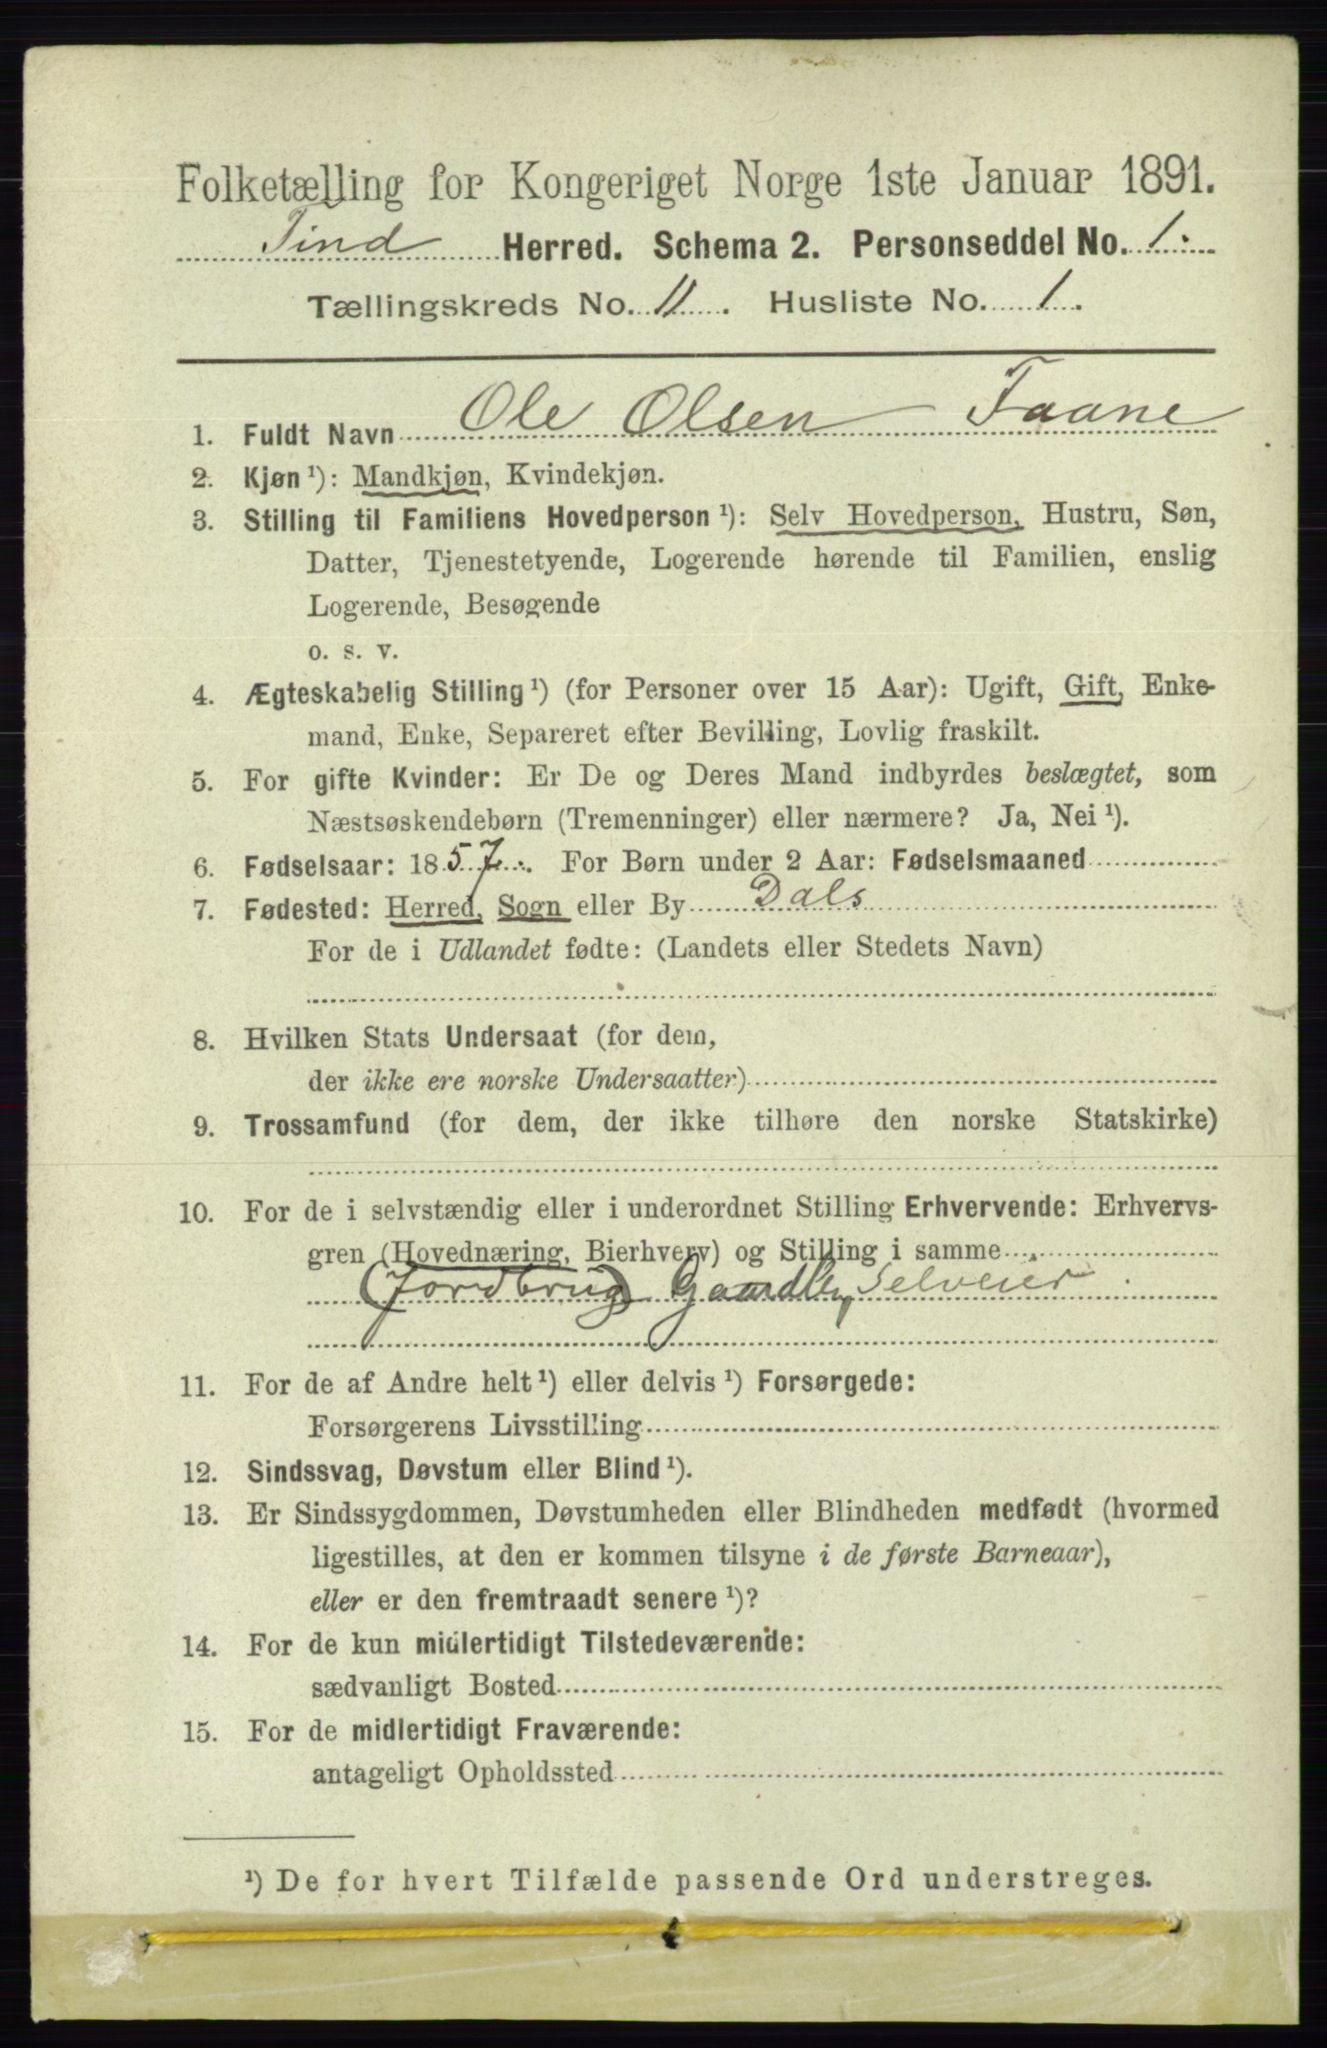 Folketælling for Kongeriget Norge 1ste Januar 1891.
Tind Herred. Schema 2. Personseddel No. 1.
Tællingskreds No. 11. Husliste No. 1.
1. Fuldt Navn Ole Olsen Faane
2. Kjøn ¹): Mandkjøn, Kvindekjøn.
3. Stilling til Familiens Hovedperson ¹): Selv Hovedperson, Hustru, Søn,
Datter, Tjenestetyende, Logerende hørende til Familien, enslig
Logerende, Besøgende
o. s. v.
4. Ægteskabelig Stilling ¹) (for Personer over 15 Aar): Ugift, Gift, Enke-
mand, Enke, Separeret efter Bevilling, Lovlig fraskilt.
5. For gifte Kvinder: Er De og Deres Mand indbyrdes beslægtet, som
Næstsøskendebørn (Tremenninger) eller nærmere? Ja, Nei ¹).
6. Fødselsaar: 1857. For Børn under 2 Aar: Fødselsmaaned
7. Fødested: Herred, Sogn eller By Dals
For de i Udlandet fødte: (Landets eller Stedets Navn)
8. Hvilken Stats Undersaat (for dem,
der ikke ere norske Undersaatter)
9. Trossamfund (for dem, der ikke tilhøre den norske Statskirke)
10. For de i selvstændig eller i underordnet Stilling Erhvervende: Erhvervs-
gren (Hovednæring, Bierhverv) og Stilling i samme
(Jordbrug) Gaardbr, Selveier
11. For de af Andre helt ¹) eller delvis ¹) Forsørgede:
Forsørgerens Livsstilling
12. Sindssvag, Døvstum eller Blind ¹).
13. Er Sindssygdommen, Døvstumheden eller Blindheden medfødt (hvormed
ligestilles, at den er kommen tilsyne i de første Barneaar),
eller er den fremtraadt senere ¹)?
14. For de kun midlertidigt Tilstedeværende:
sædvanligt Bosted
15. For de midlertidigt Fraværende:
antageligt Opholdssted
¹) De for hvert Tilfælde passende Ord understreges.